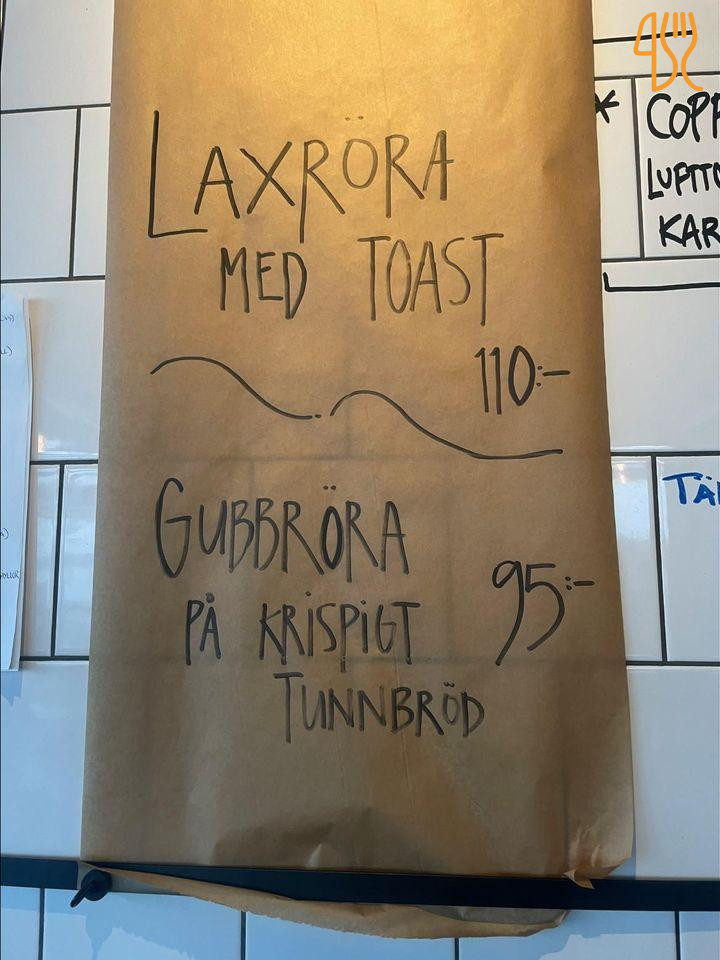 LAXRÖRA
MED TOAST
110:-
GUBBRÖRA
PÅ KRISPIGT
TUNNBRÖD
95:-
*
KAR